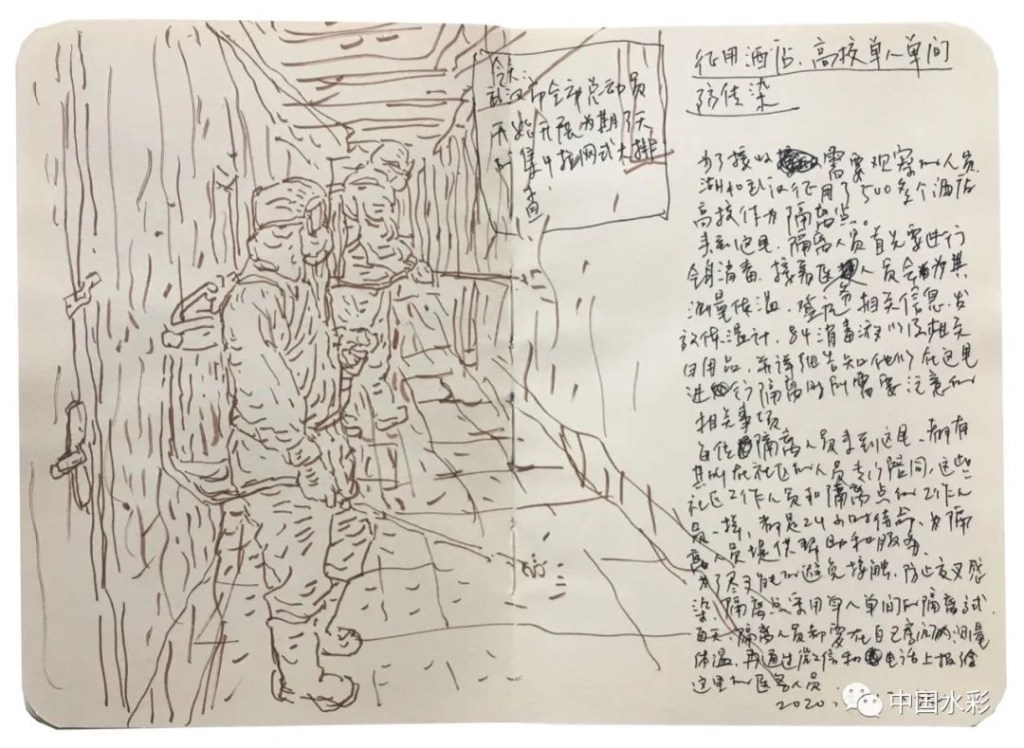 今天，
武汉市全市总动员
开始开展为期3天
的集中拉网式大排
查
征用酒店、高校单人单间
防传染
为了接收需要观察的人员
湖北武汉征用了500多个酒店
高校作为隔离点。
来到这里，隔离人员首先要进行
全身消毒，接着医务人员会为其
测量体温，登记相关信息，发
放体温计、84消毒液以及相关
日用品，并详细告知他们在这里
进行隔离时所需要注意的
相关事项
每位隔离人员来到这里，都有
其所在社区的人员专门陪同，这些
社区工作人员和隔离点的工作人
员一样，都是24小时待命，为隔
离人员提供帮助和服务。
为了尽可能的避免接触，防止交叉感
染，隔离点采用单人单间的隔离方式
每天，隔离人员都要在自己房间内测量
体温，再通过微信和电话上报给
这里的医务人员
2020.
中国水彩